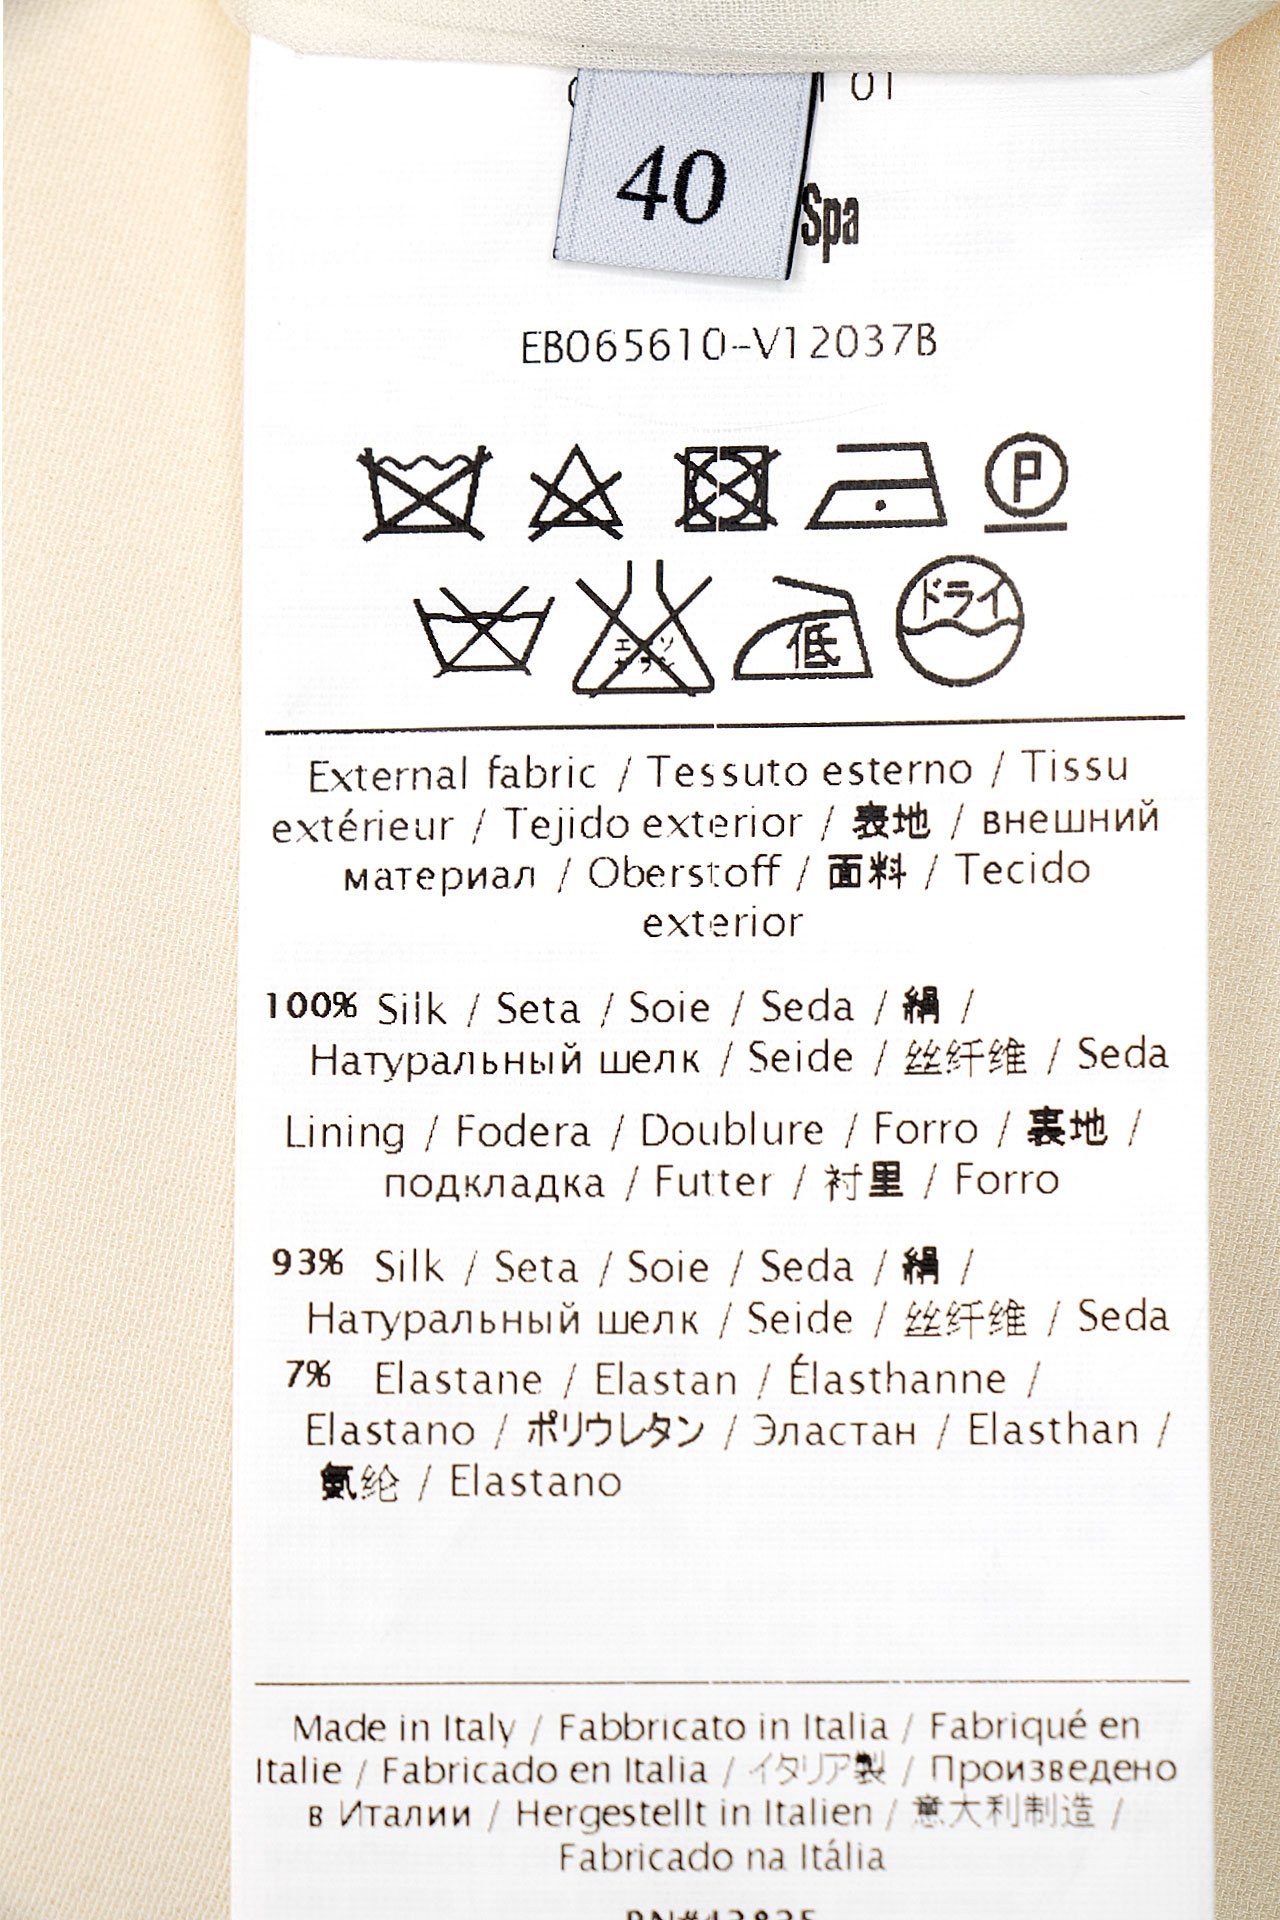 01
40
Spa
EB065610-V12037B
P
エンソ
サラン
低
ドライ
External fabric / Tessuto esterno / Tissu
extérieur / Tejido exterior / 表地 / внешний
материал / Oberstoff / 面料 / Tecido
exterior
100% Silk / Seta / Soie / Seda / 絹 /
Натуральный шелк / Seide / 丝纤维 / Seda
Lining / Fodera / Doublure / Forro / 裏地 /
подкладка / Futter / 衬里 / Forro
93% Silk / Seta / Soie / Seda / 絹 /
Натуральный шелк / Seide / 丝纤维 / Seda
7% Elastane / Elastan / Élasthanne /
Elastano / ポリウレタン / Эластан / Elasthan /
氨纶 / Elastano
Made in Italy / Fabbricato in Italia / Fabriqué en
Italie / Fabricado en Italia / イタリア製 / Произведено
в Италии / Hergestellt in Italien / 意大利制造 /
Fabricado na Itália
RN#43835